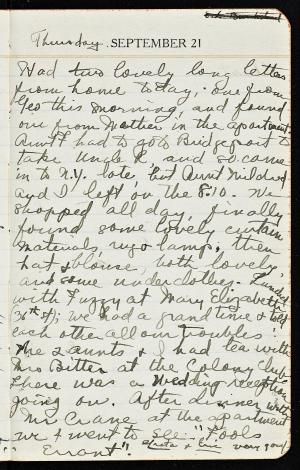 Thursday. SEPTEMBER 21
Had two lovely long letters
from home to day, - one from
Geo this morning, and found
one from Mother in the apartment.
Aunt F had to go to Bridgeport to
take Uncle R, and so came
in to N.Y. late, but Aunt Mildred
and I left on the 8:10. We
shopped all day, finally
found some lovely curtain
materials, rugs lamp, then
hat & blouse, both lovely,
and some underclothes. Lunched
with Fuzzy at Mary Elizabeth's
(36th St); we had a grand time & told
each other all our troubles.
The 2 aunts & I had tea with
Mrs Bitter at the Colony Club.
There was a Wedding reception
going on. After dinner with
Mr Crane at the apartment
we went to see "Fools
Errant". very good